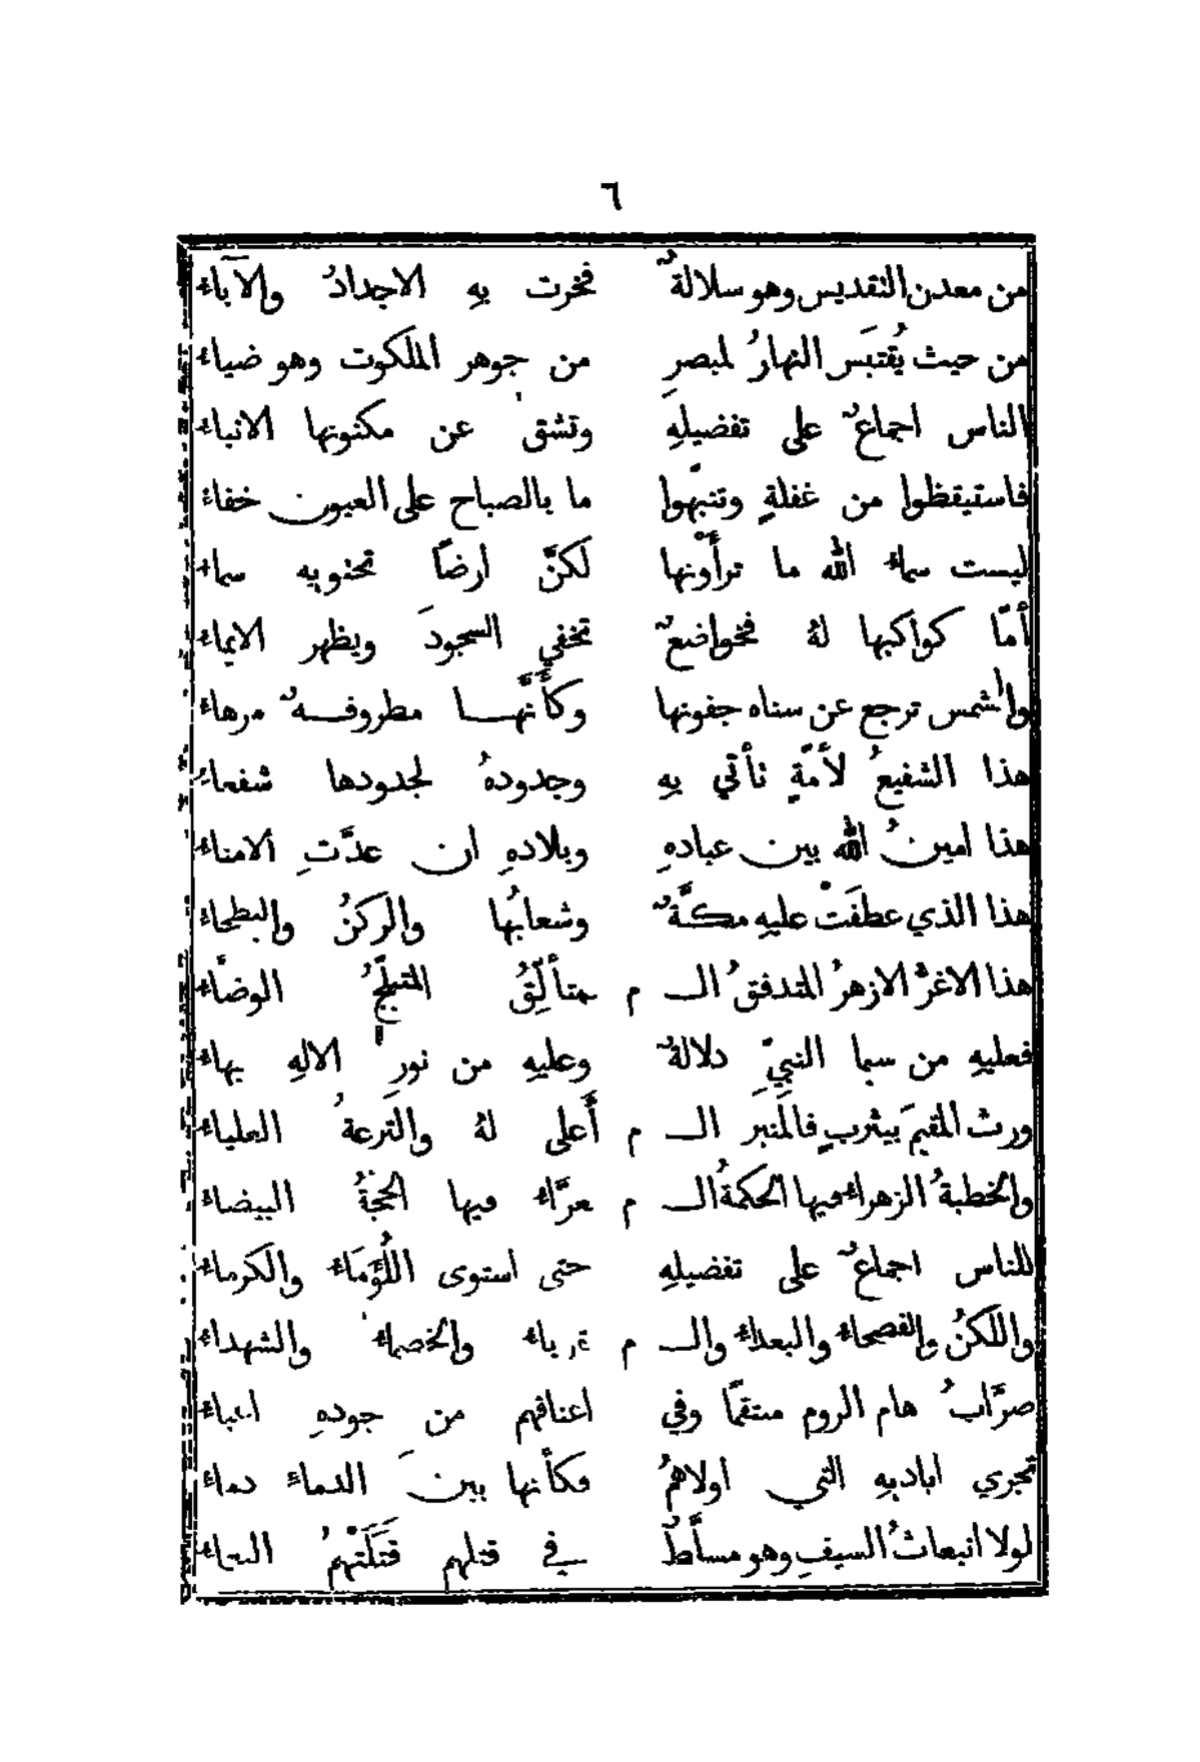 ٦
من معدن التقديس وهو سلالةٌ فخرت بهِ الاجدادُ والآباءُ
من حيث يُقتبَس النهارُ لمبصرٍ من جوهر الملكوت وهو ضياءُ
الناس اجماعٌ على تفضيلهِ وتشقُ عن مكنونها الانباءُ
فاستيقظوا من غفلةٍ وتنبّهوا ما بالصباح على العيون خفاءُ
ليست سماءُ الله ما ترأَوْنها لكنَّ ارضًا تحتويه سماءُ
أمّا كواكبها لهُ فخواضعٌ تخفي السجودَ ويظهر الايماءُ
والشمس ترجع عن سناه جفونها وكأَنَّهـا مطروفـةٌ مرهاءُ
هذا الشفيعُ لأمّةٍ تأتي بهِ وجدودهُ لجدودها شفعاءُ
هذا امينُ الله بين عبادهِ وبلادهِ ان عدَّتِ الامناءُ
هذا الذي عطفَتْ عليهِ مكَّةٌ وشعابُها والركنُ والبطحاءُ
هذا الاغرُّ الازهرُ المتدفقُ الـ م ـمتألِّقُ المتبلّجُ الوضّاءُ
فعليهِ من سيما النبيّ دلالةٌ وعليهِ من نورِ الالهِ بهاءُ
ورث المقيمَ بيثربٍ فالمنبَر الـ م أَعلى لهُ والترعةُ العلياءُ
والخطبةُ الزهراءُ فيها الحكمةُ الـ م غرَّاءُ فيها الحجّةُ البيضاءُ
للناس اجماعٌ على تفضيلهِ حتى استوى اللُّؤَمَاءُ والكرماءُ
واللكنُ والفصحاءُ والبعداءُ والـ م قرباءُ والخصماءُ والشهداءُ
ضرَّابُ هام الروم منتقمًا وفي اعناقهم من جودهِ اعباءُ
تجري اياديهِ التي اولاهمُ فكأنها بينَ الدماءُ دماءُ
لولا انبعاثُ السيفِ وهو مسلَّطٌ في قتلهم قَتَلَتْهمُ النعماءُ